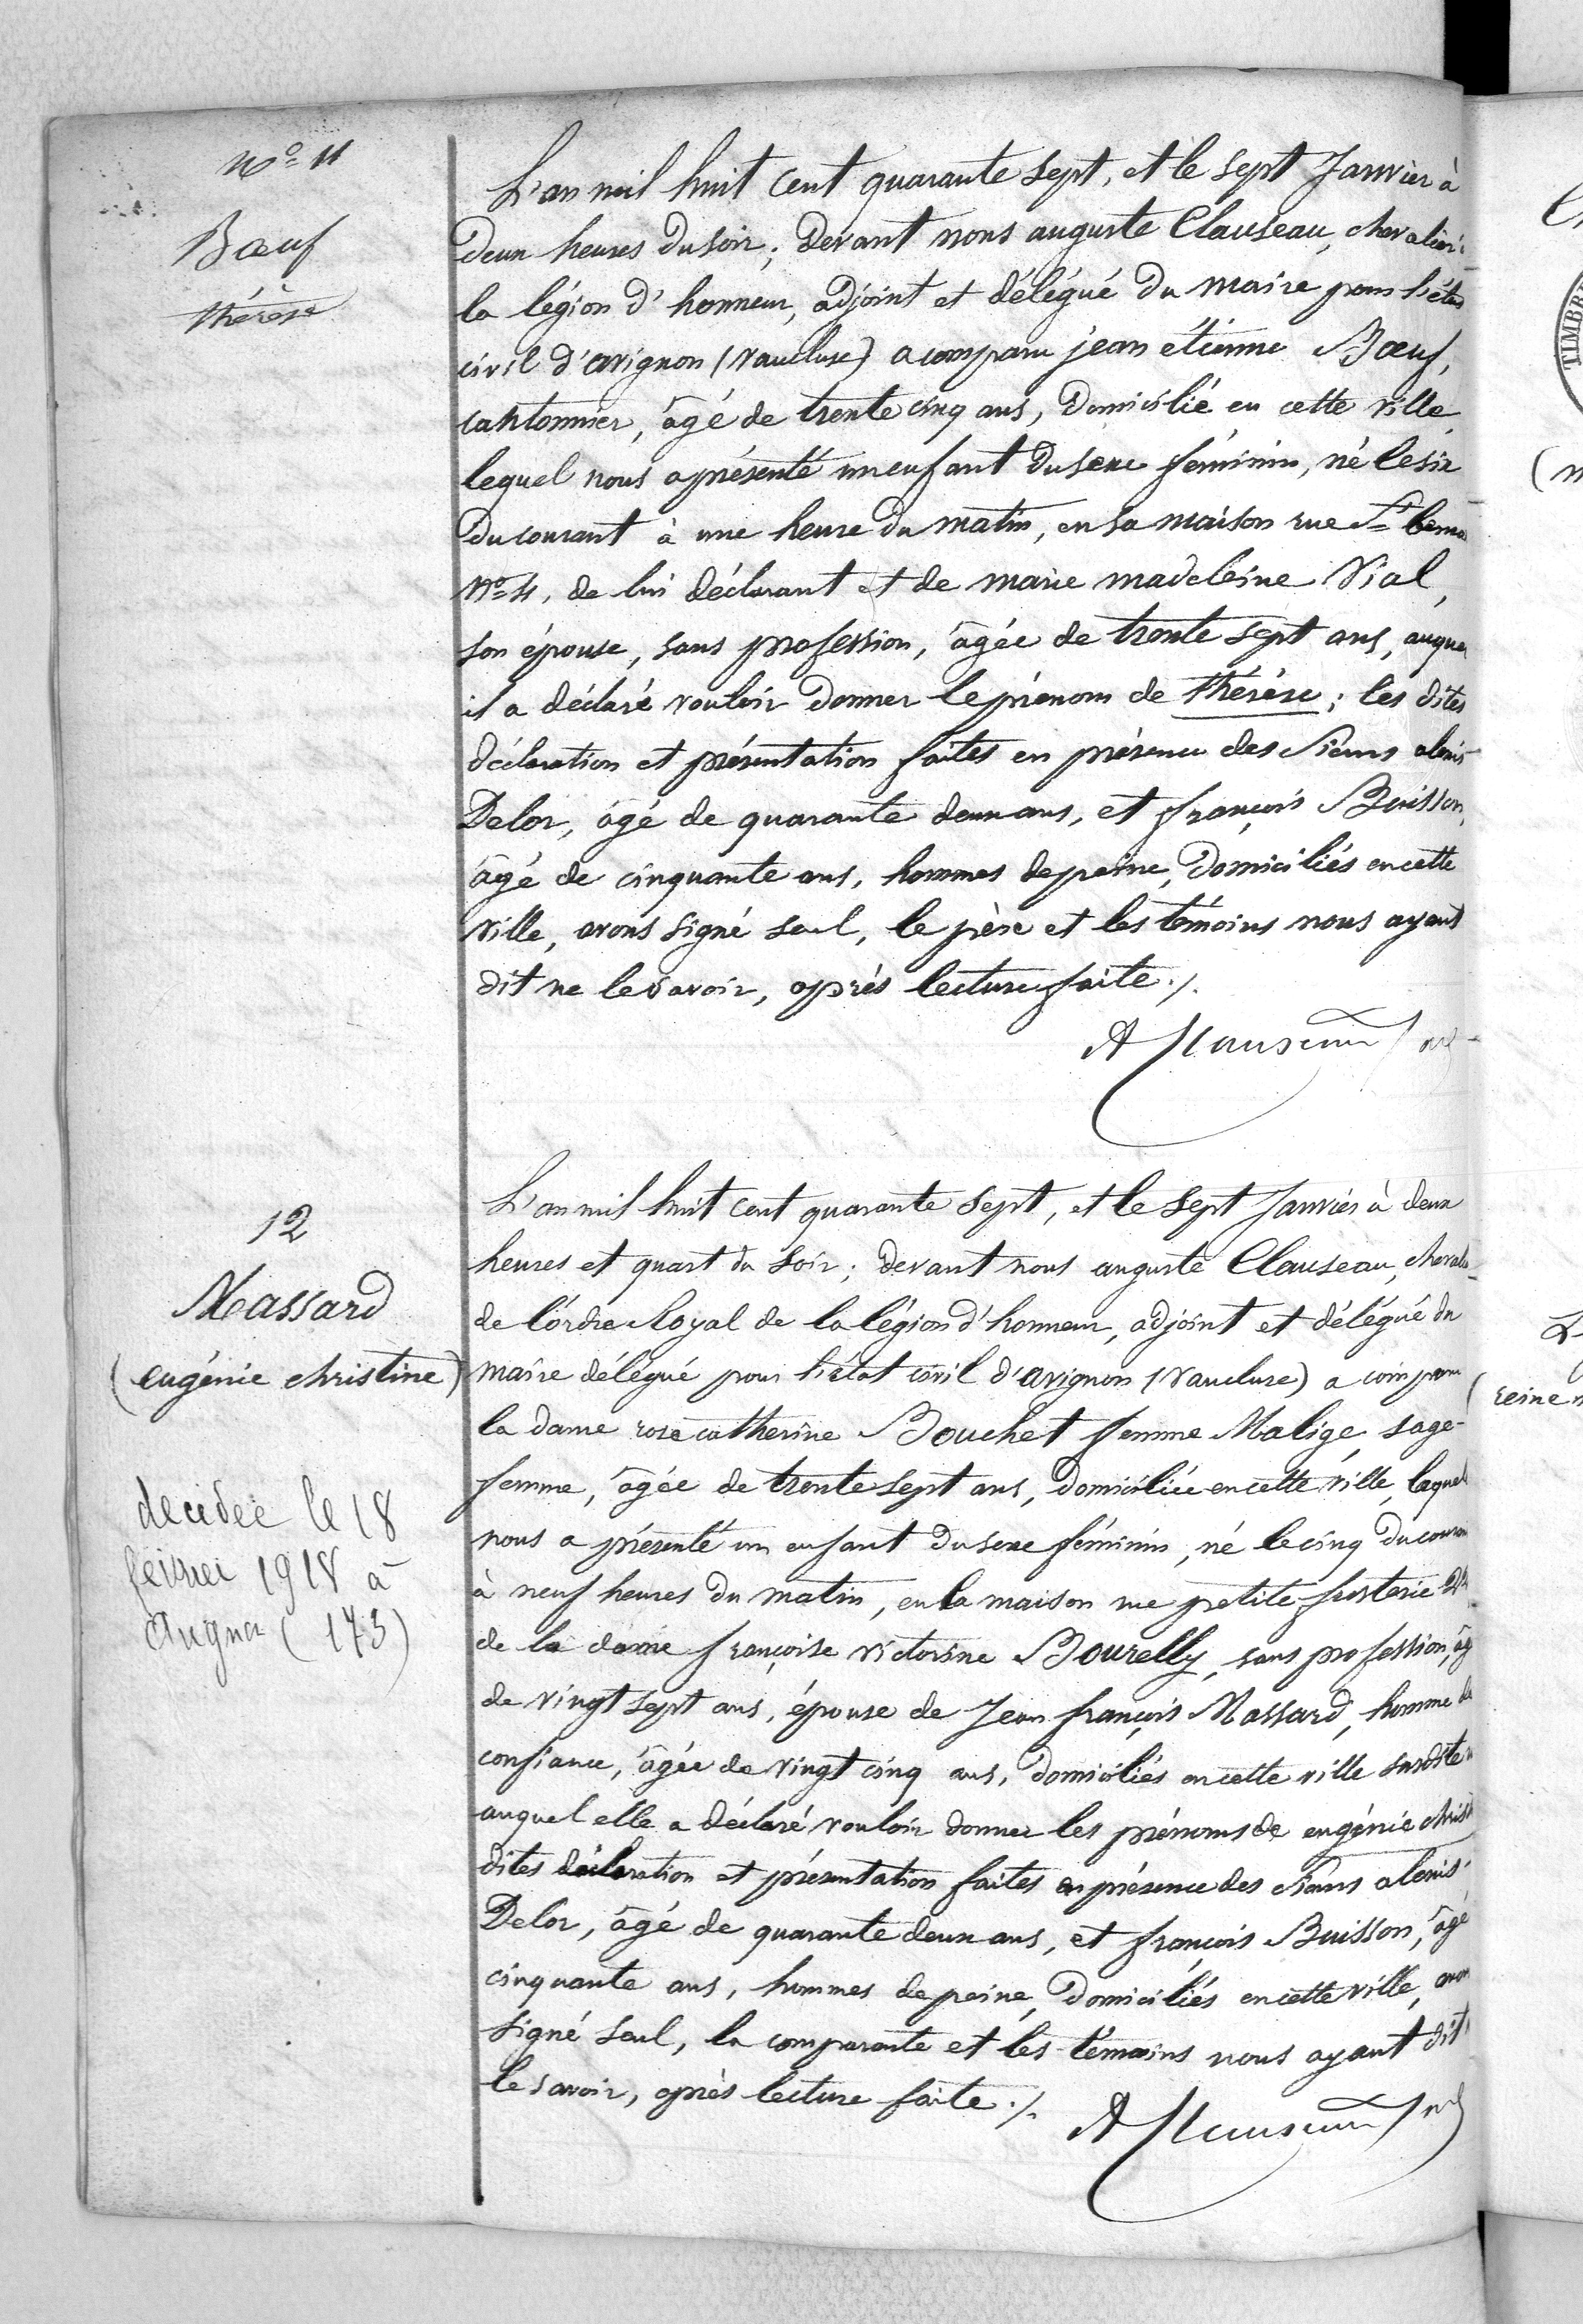 N° 11
Bœuf
thérèse
L'an mil huit cent quarante sept, et le sept Janvier à
Deux heures du soir; Devant nous auguste Clauseau, chevalier
la légion d'honneur, adjoint et délégué du maire pour l'état
civil d'avignon (vaucluse) a comparu jean étienne Bœuf,
cantonnier, âgé de trente cinq ans, Domicilié en cette ville,
lequel nous a présenté un enfant du sexe féminin, né le six
Du courant à une heure du matin, en sa maison rue St
N° 4, de lui déclarant et de marie madeleine Vial,
son épouse, sans profession, âgée de trente sept ans, auquel
il a déclaré vouloir donner le prénom de thérèse; les dites
déclaration et présentation faites en présence des Sieurs alexis
Delor, âgé de quarante deux ans, et françois Buisson,
âgé de cinquante ans, hommes de peine, Domiciliés en cette
ville, avons signé seul, le père et les témoins nous ayant
dit ne le savoir, après lecture faite ./.
A Clauseau
12
Massard
(eugénie christine)
decedée le 18
fevrier 1918 à
Avignon (173)
L'an mil huit cent quarante sept, et le sept Janvier à deux
heures et quart du soir; devant nous auguste Clauseau, chevalier
de l'ordre Royal de la légion d'honneur, adjoint et délégué du
maire délégué pour l'état civil d'avignon (vaucluse) a comparu
la dame rose catherine Bouchet femme Malige, sage-
femme, âgée de trente sept ans, domiciliée en cette ville, laquel
nous a présenté un enfant du sexe féminin, né le cinq du courant
à neuf heures du matin, en la maison rue petite fusterie
de la dame françoise victorine Bourelly, sans profession, âg
de vingt sept ans, épouse de Jean françois Massard, homme de
confiance, âgée de vingt cinq ans, domiciliés en cette ville susdite
auquel elle a déclaré vouloir donner les prénoms de eugénie christ
dites déclaration et présentation faites en présence des Sieurs alexis
Delor, âgé de quarante deux ans, et françois Buisson, âgé
cinquante ans, hommes de peine, Domiciliés en cette ville, avons
signé seul, la comparante et les témoins nous ayant dit
le savoir, après lecture faite ./.
A Clauseau
TIMBRE
reine